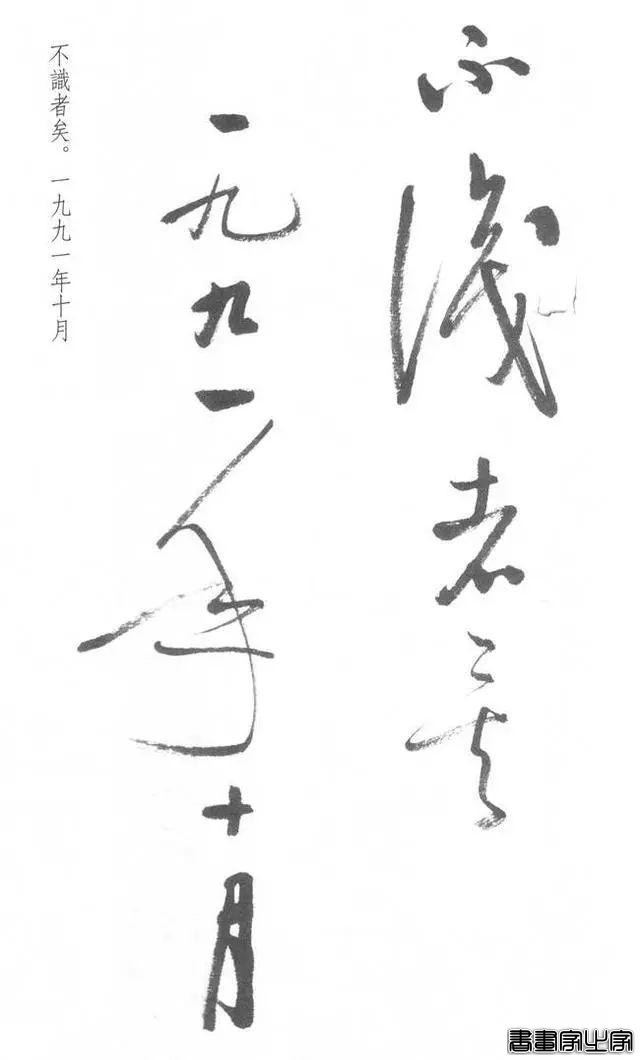 不識者矣
一九九一年十月
不識者矣。一九九一年十月
書畫家之家